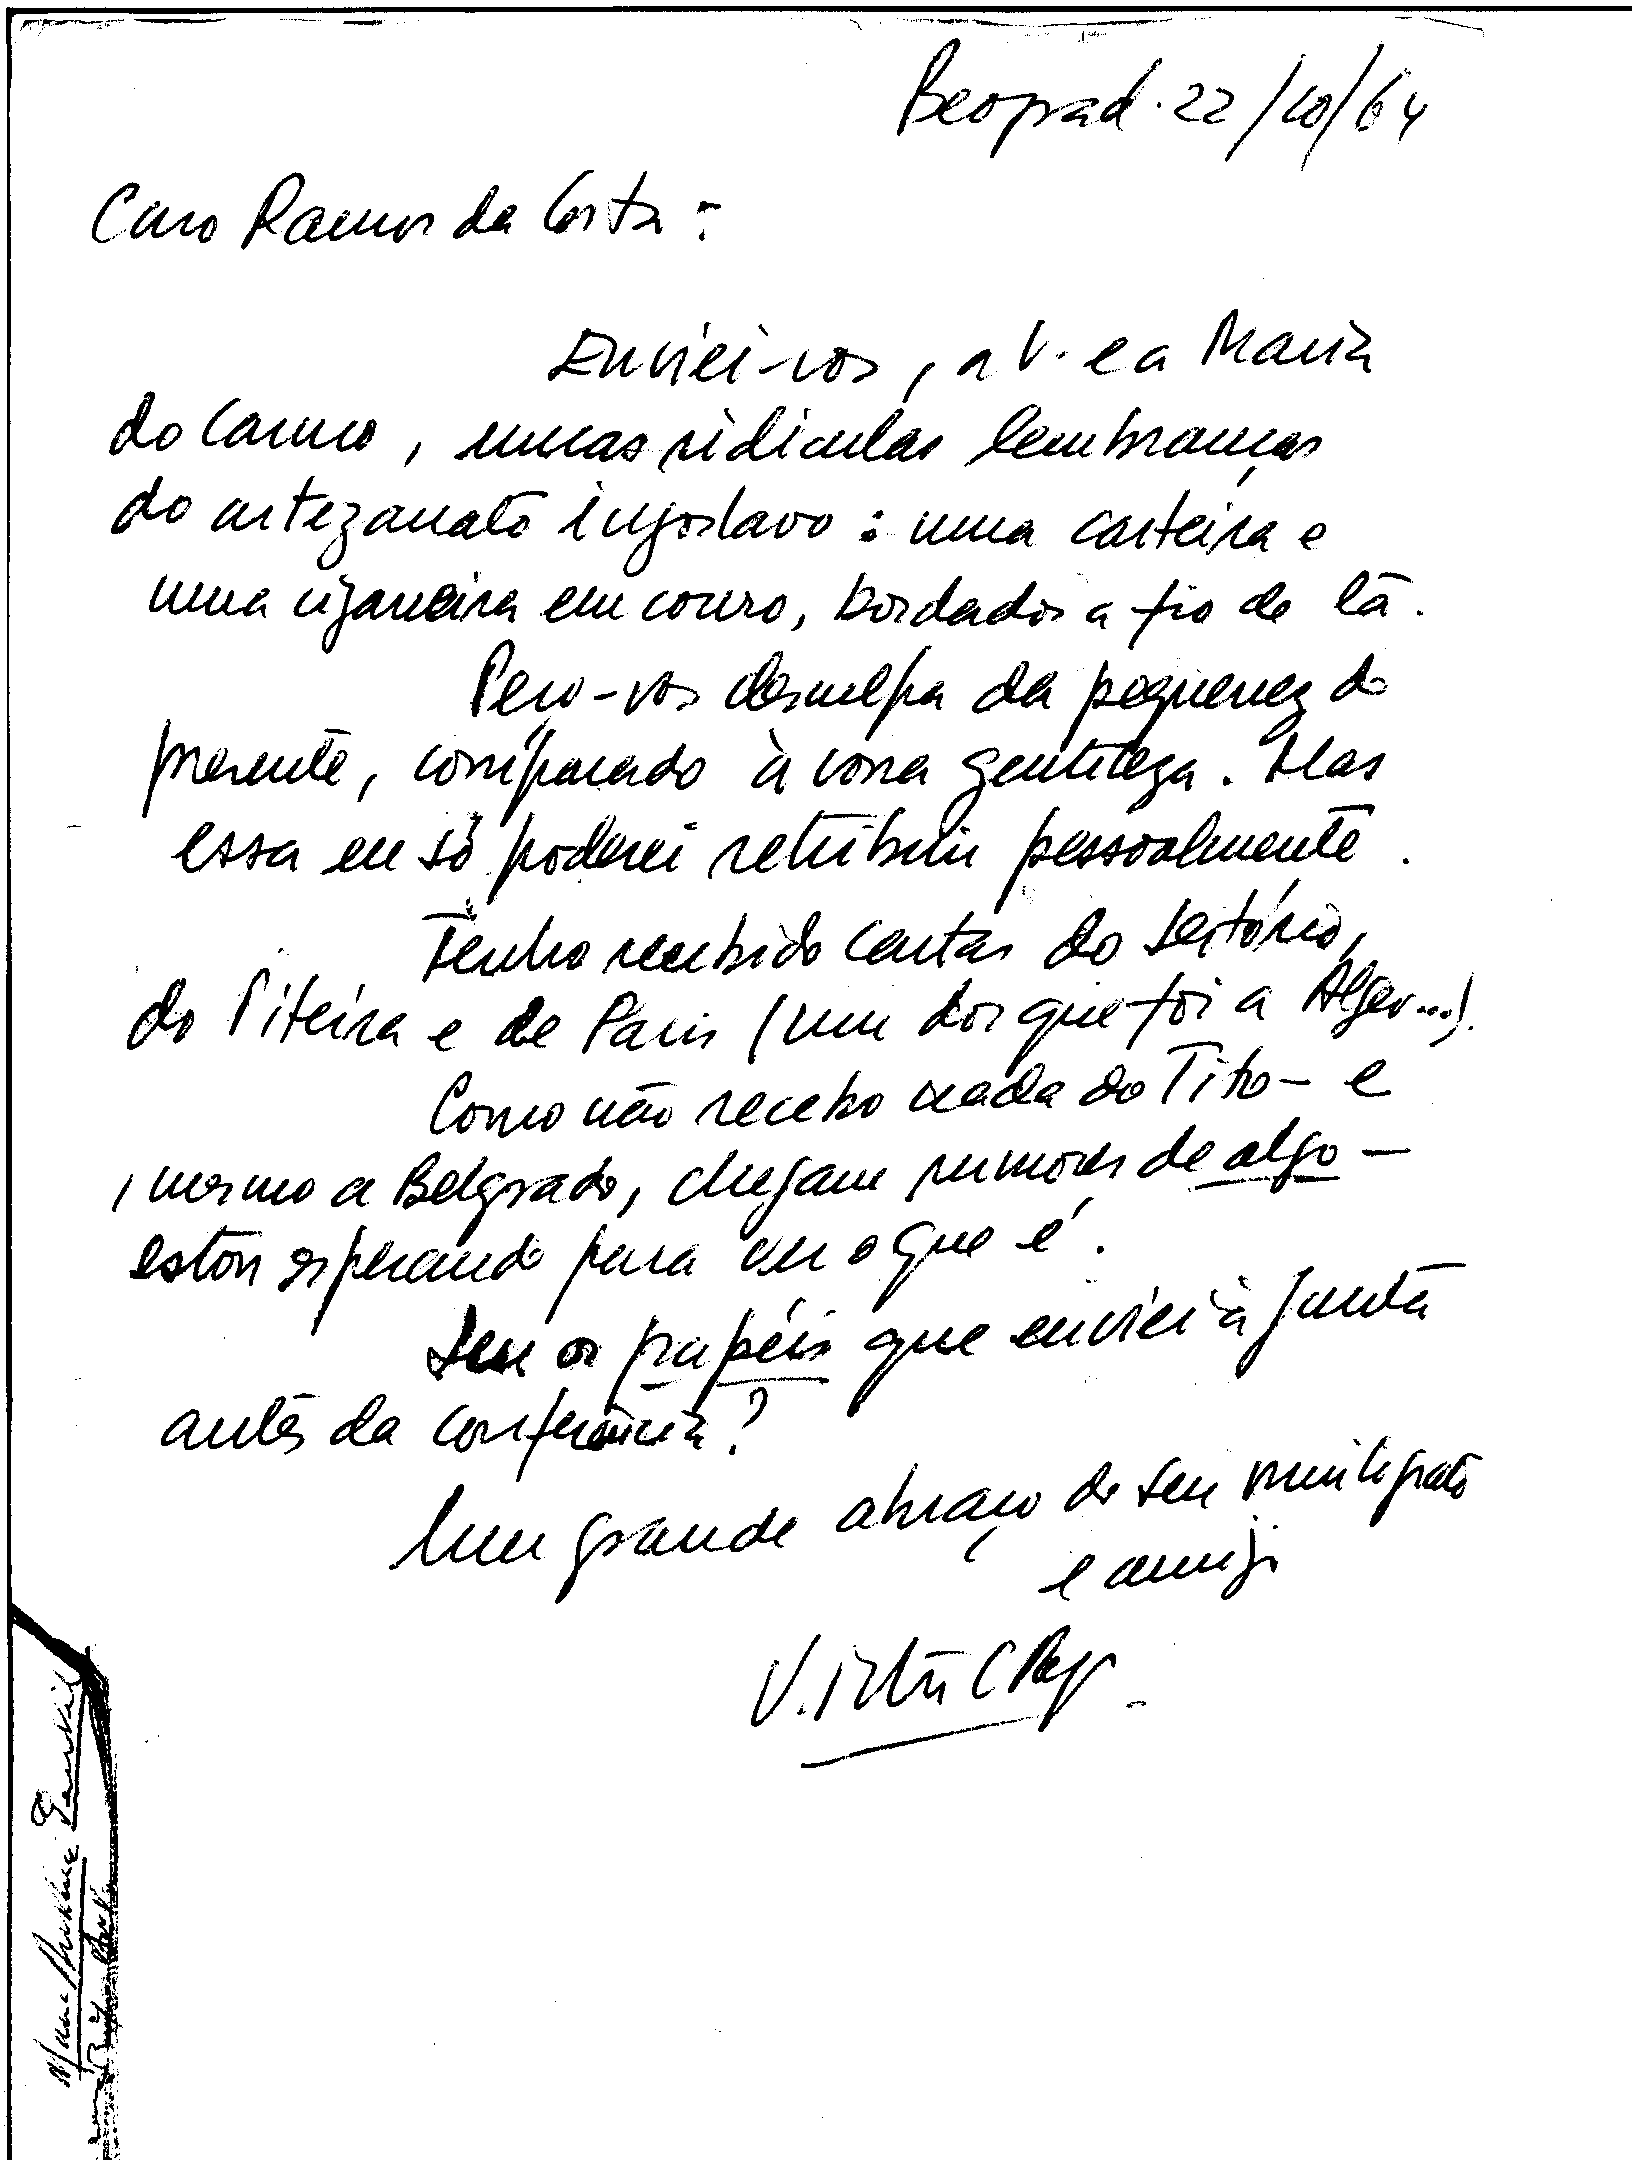 Beograd. 22/10/64
Caro Ramos da Costa:
Enviei-vos, a V. e a Maria
do Carmo, umas ridiculas lembranças
do artezanato iugoslavo: uma carteira e
uma cigarreira em couro, bordados a fio de lã.
Peço-vos desculpa da pequenez do
presente, comparado à vossa gentileza. Mas
essa eu só poderei retribuir pessoalmente.
Tenho recebido cartas do Sertório,
do Piteira e de Paris (um dos que foi a Alger...).
Como não recebo nada do Tito - e
, mesmo a Belgrado, chegam rumores de algo -
estou esperando para ver o que é.
Leu os papéis que enviei à Junta
antes da conferência?
Um grande abraço do seu muito grato
e amigo